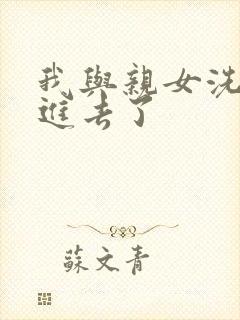 我與親女洗
進去了
蘇文青